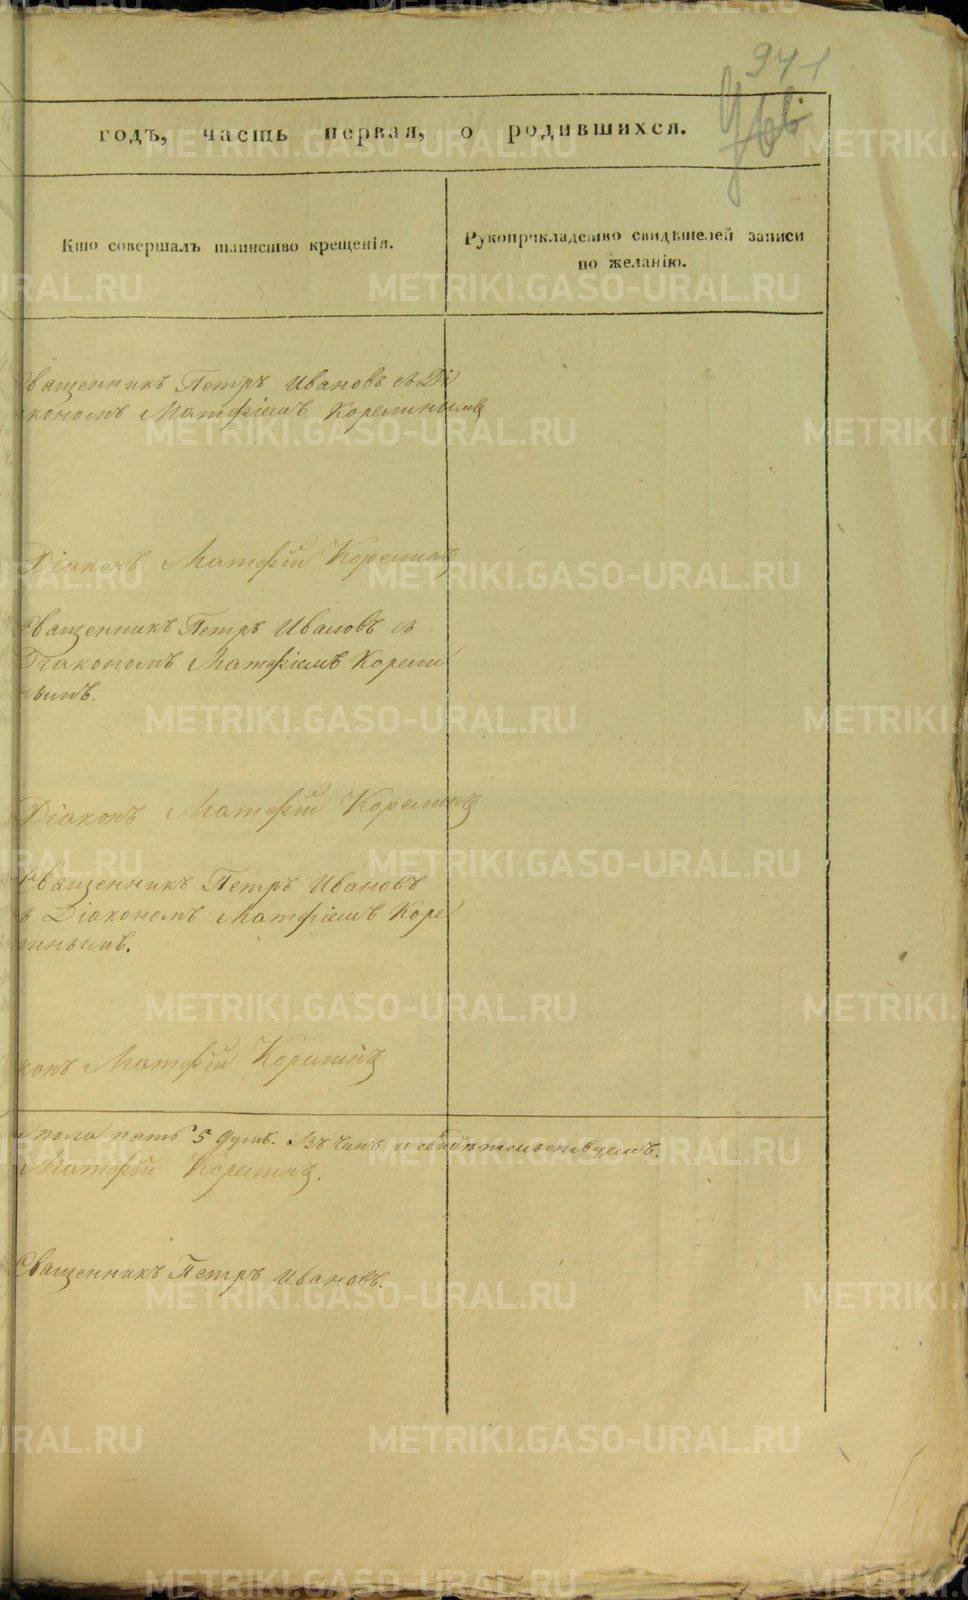 941
годъ, часть первая, о родившихся.
Кто совершалъ таинство крещенія.
Рукоприкладство свидѣтелей записи
по желанію.
Священникъ Петръ Ивановъ съ Ді
акономъ Матфіемъ Корелинымъ
Діаконъ Матфій Корелинъ
Священникъ Петръ Ивановъ съ
Діакономъ Матфіемъ Корели
нымъ.
Діаконъ Матфій Корелинъ
Священникъ Петръ Ивановъ
съ Діакономъ Матфіемъ Коре
линымъ.
конъ Матфій Корелинъ
пола пять 5 душъ. и свидѣтельствуемъ.
Матфій Корелинъ.
Священникъ Петръ Ивановъ.
METRIKI.GASO-URAL.RU